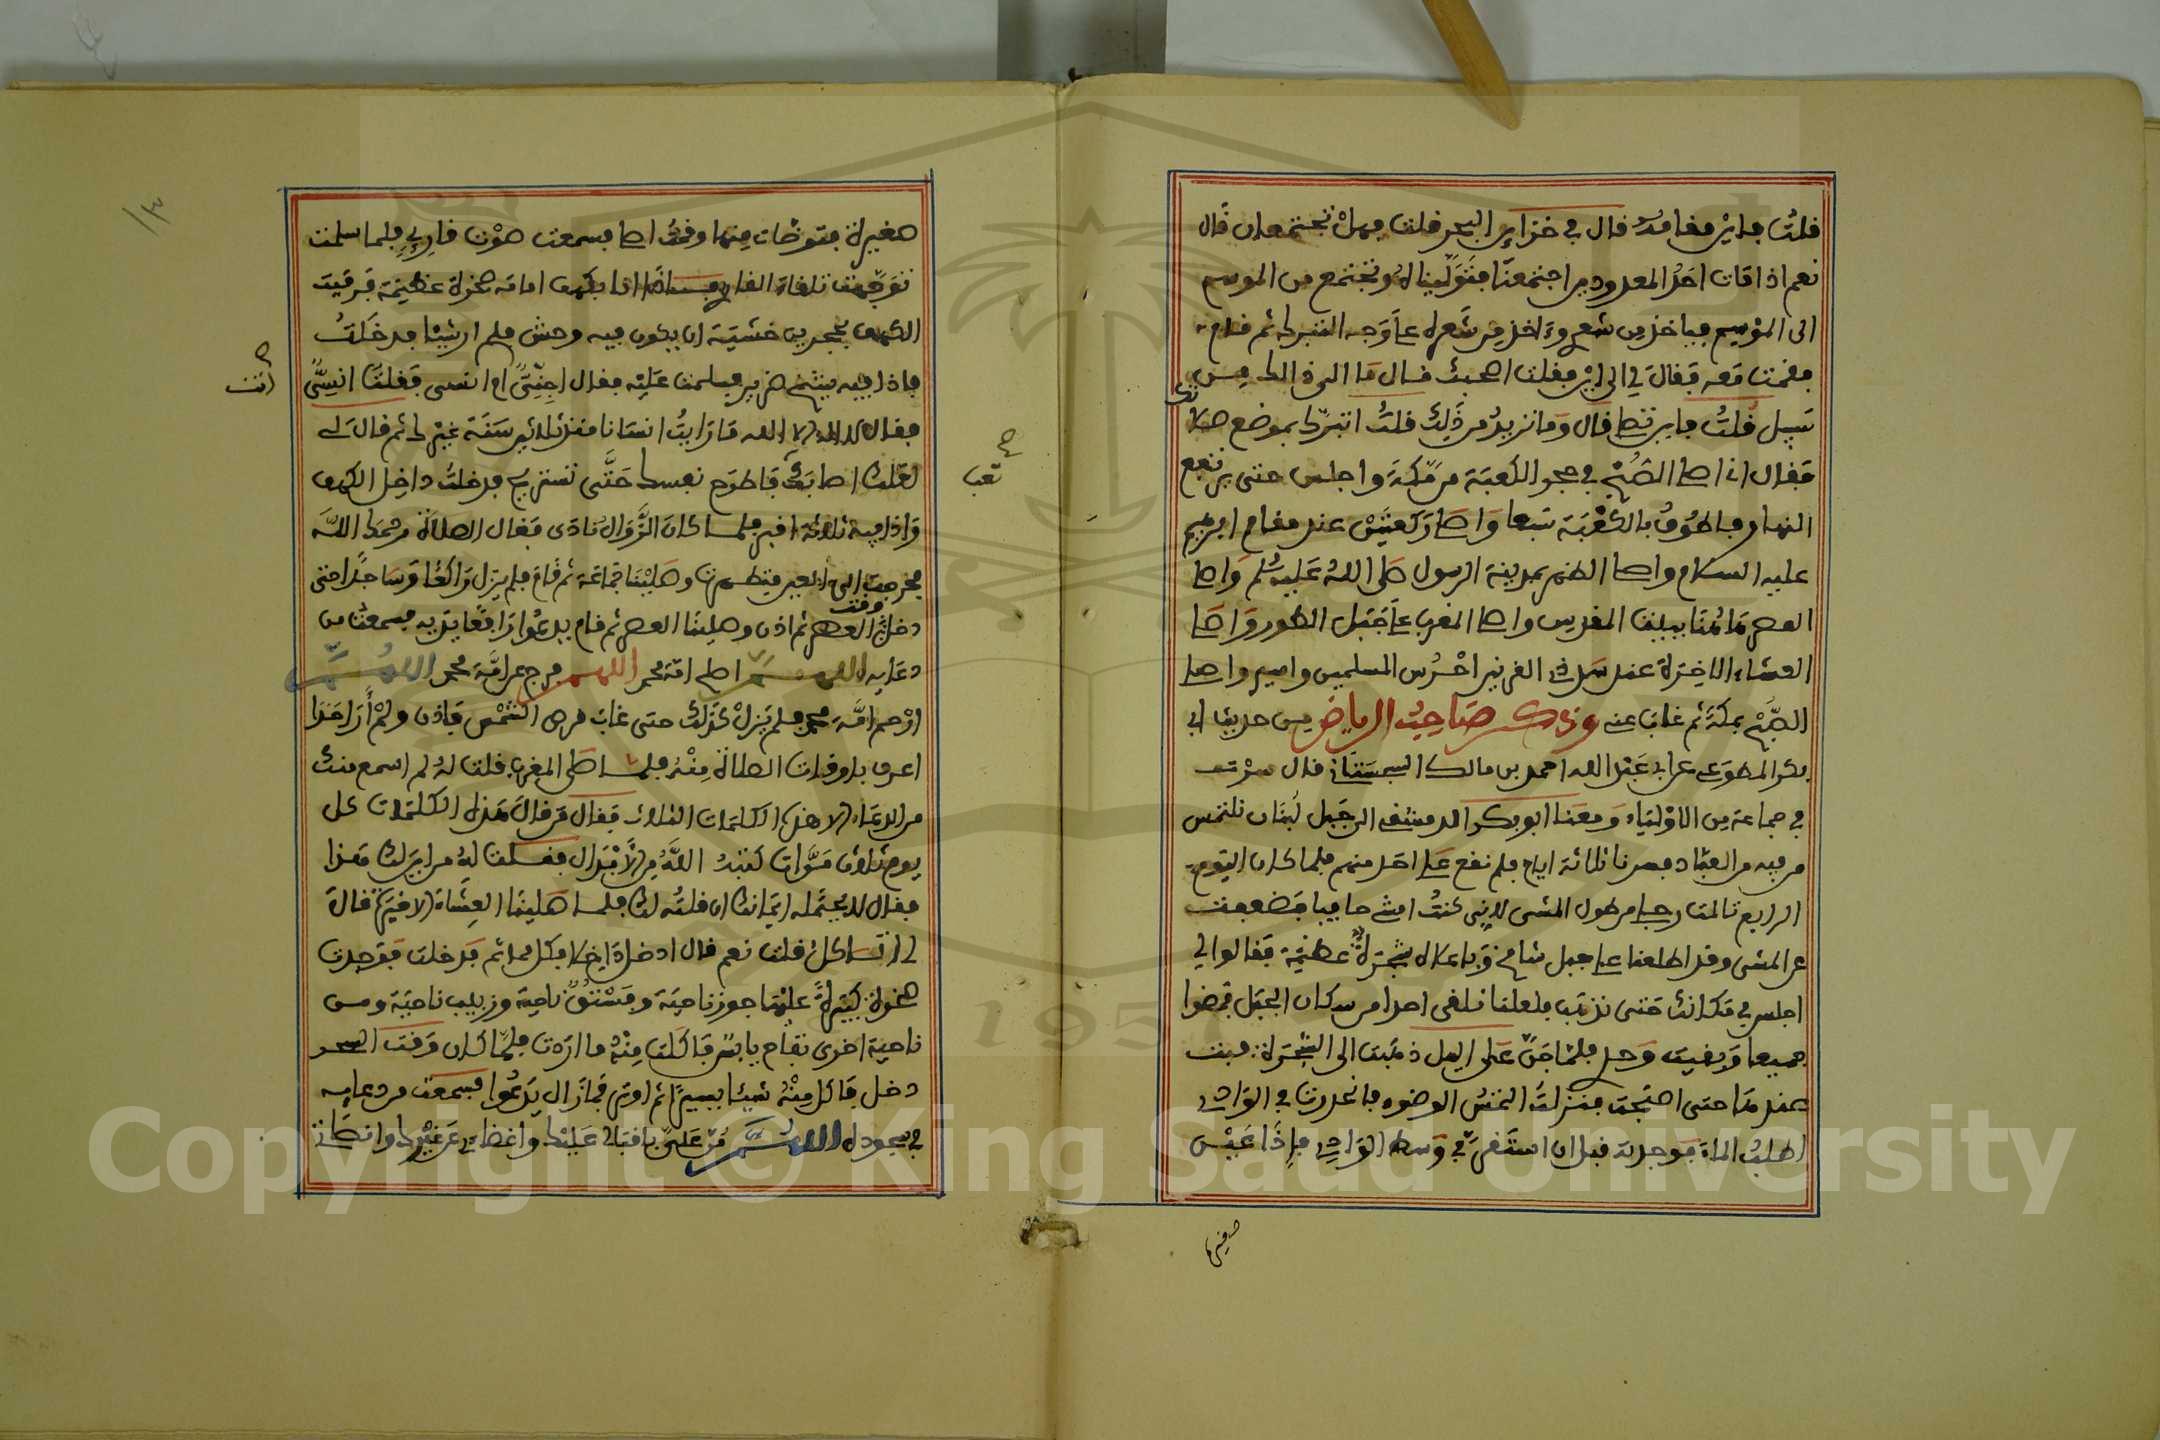 قلتُ فاين مقامه قال في خزاين البحر قلت فهل تجتمعان قال
نعم اذا مات احد المعدودين اجتمعنا فتولينا له ونجتمع من الموسم
الى الموسم فياخذ من شعري واخذ من شعره على وجه التبرك ثم قام
فقمت معه فقال لي الى اين فقلت اصحبك قال ما الى ذالك من
سبيل قلتُ فاين تصلي قال وما تريد من ذلك قلتُ اتبرّك بموضع صلا
تك
فقال اني اصلي الصُّبْح في حجر الكعبة من مكة واجلس حتى يرتفع
النهار فاطوف بالكعبة سبعا واصلي ركعتين عند مقام ابرهيم
عليه السلام واصلي الظهر بمدينة الرسول صلى الله عليه وسلم واصلي
العصر ببيت المقدس واصلي المغرب على جبل الطور واصلي
العشاء الاخيرة عند سد ذي القرنين احرُس المسلمين واصلي
الصُّبْح بمكة ثم غاب عني وذكر صاحبُ الرياض من حديث ابي
بكر المطوعي عن ابي عبد الله احمد بن مالك السجستاني قال سرت
في جماعة من الاولياء ومعنا ابو بكر الدمشقي الى جبل لبنان نلتمس
من فيه من العباد فسرنا ثلاثة ايام فلم نقع على احد منهم فلما كان اليوم
الرابع تالمت رجلي من طول المشي لاني كنتُ امشي حافيا فضعفت
عن المشي وقد اطلعنا على جبل شامخ وباعلاه شجرةٌ عظيمة فقالوا لي
اجلس في مكانك حتى نذهب فلعلنا نلقى احدا من سكان الجبل فمضوا
جميعا وبقيت وحدي فلما جنّ علي اليل ذهبت الى الشجرة فبت
عندها حتى اصبحت فنزلتُ التمس الوضوء فانحدرت في الوادي
اطلبُ الماء فوجدته قبل ان استقر في وسط الوادي فاذا عين
صغيرة
صح
تعب
صغيرة فتوضات منها وقمتُ اصلي فسمعت صوت قارئ فلما سلمت
توجهت تلقاء القاري فاذا بكهف امامه صخرة عظيمة فرميت
الكهف بحجر من خشية ان يكون فيه وحش فلم ار شيئا فدخلتُ
فاذا فيه شيخ ضرير فسلمت عليه فقال اجِنِّيٌّ ام انسي فقلتُ انسيٌّ
صح
انت
فقال لا اله الا الله ما رايتُ انسانا منذ ثلاثين سنة غيرك ثم قال لي
لعلك اصابك فاطرح نفسك حتى تستريح فدخلتُ داخل الكهف
واذا فيه ثلاثة اقبر فلما كان الزَّوَال نادى فقال الصلاة رحمك اللَّه
فخرجت الى العين فتطهرت وصلينا جماعة ثم قام فلم يزل راكعا وساجدا حتى
دخل وقت العصر ثم اذن وصلينا العصر ثم قام يدعوا رافعا يديه فسمعت من
دعايه اللهم اصلح امة محمد اللهم فرج عن امَّة محمد اللهم
ارْحم امَّة محمد فلم يزلْ كذلك حتى غاب قرص الشمس فاذن ولمْ أر احدا
اعرف باوقات الصلاة منه فلما صلى المغرب قلت له لم اسمع منك
من الدعاء الا هذه الكلمات الثلاث فقال من قال هذه الكلمات كل
يوم ثلاث مرات كتبه اللَّه من الابدال فقلت له من اين لك هذا
فقال لا يحتمله ايمانك ان قلته لك فلما صلينا العشاء الاخيرة قال
لي اتاكل قلت نعم قال ادخل داخلا فكل مما ثم فدخلت فوجدت
صخرة كبيرة عليها جوز ناحية وفستقٌ ناحية وزبيب ناحية ومن
ناحية اخرى تفاح يابس فاكلت منه ما اردت فلما كان وقت السحر
دخل فاكل منه شيئا يسيرا ثم اوتر فما زال يدعوا فسمعت من دعايه
في سجوده اللهم مُنّ علي باقبالي عليك واغضاءي عن غيرك وانصاتي
١٣